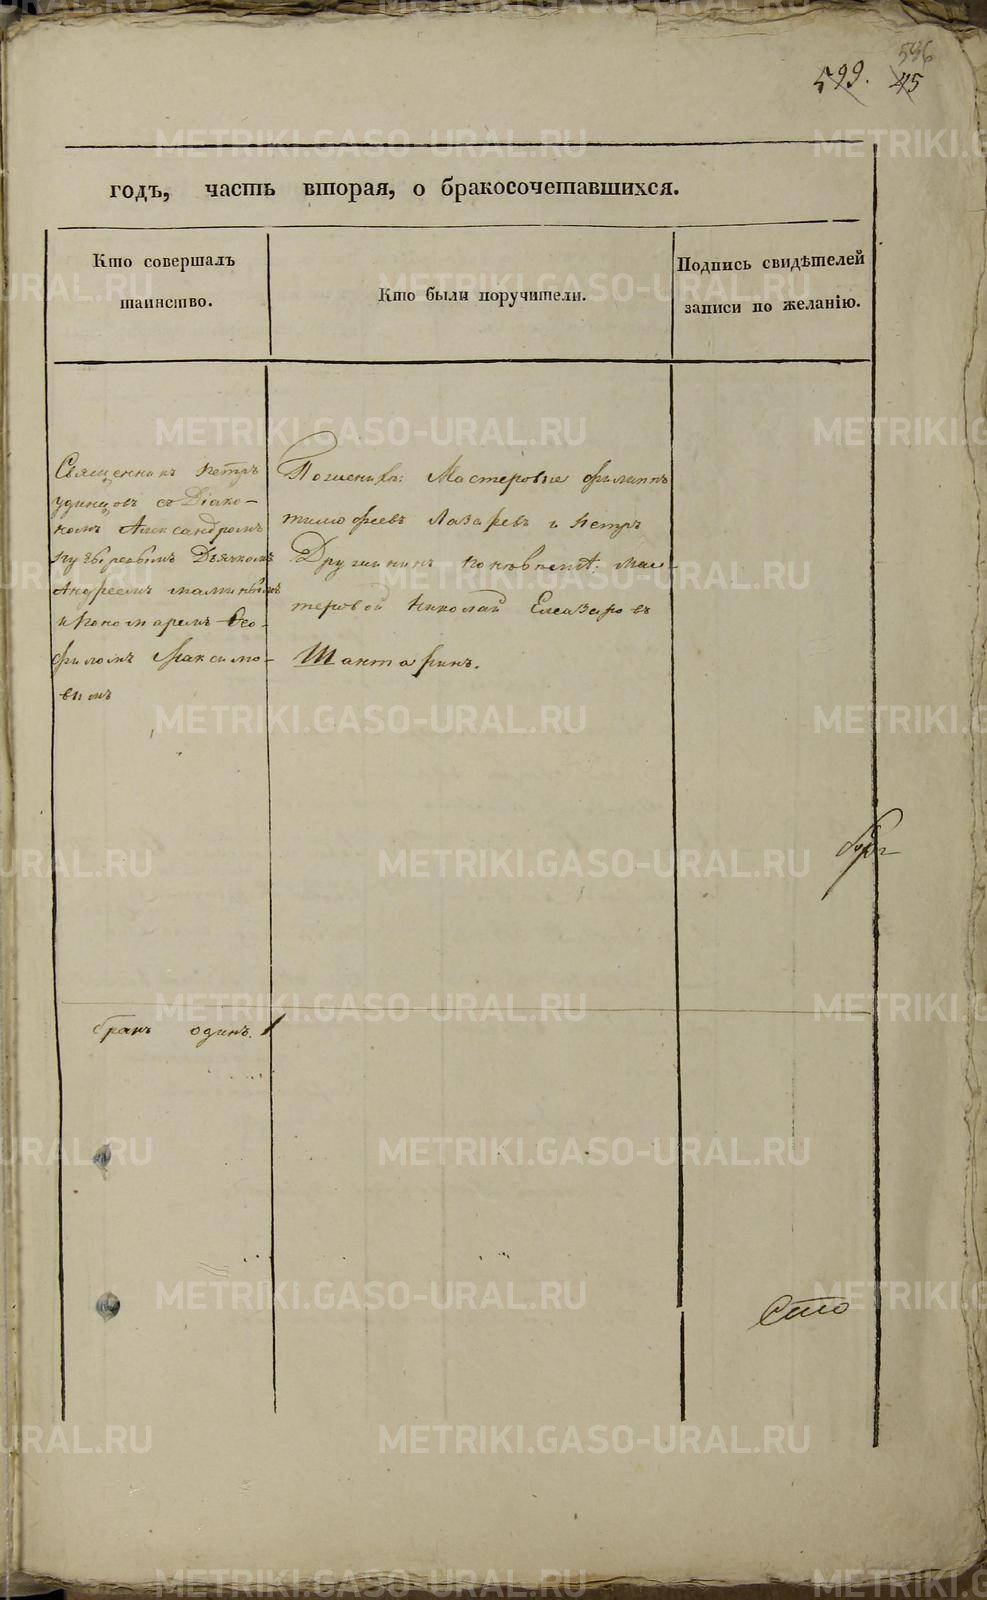 596
599. 45
годъ, часть вторая, о бракосочетавшихся.
Кто совершалъ
таинство.
Кто были поручители.
Подпись свидѣтелей
записи по желанію.
Священникъ Петръ
Удинцовъ съ Діако-
номъ Александромъ
Дьячкомъ
Андреемъ Маминымъ
и Пономаремъ Ѳео-
филомъ Максимо-
вымъ
По женихѣ: Мастеровые Филиппъ
Тимофеевъ Лазаревъ и Петръ
Дружининъ по невѣстѣ: мас-
теровой Николай Елеазаровъ
Шактаринъ.
бракъ одинъ. 1
Сто
METRIKI.GASO-URAL.RU